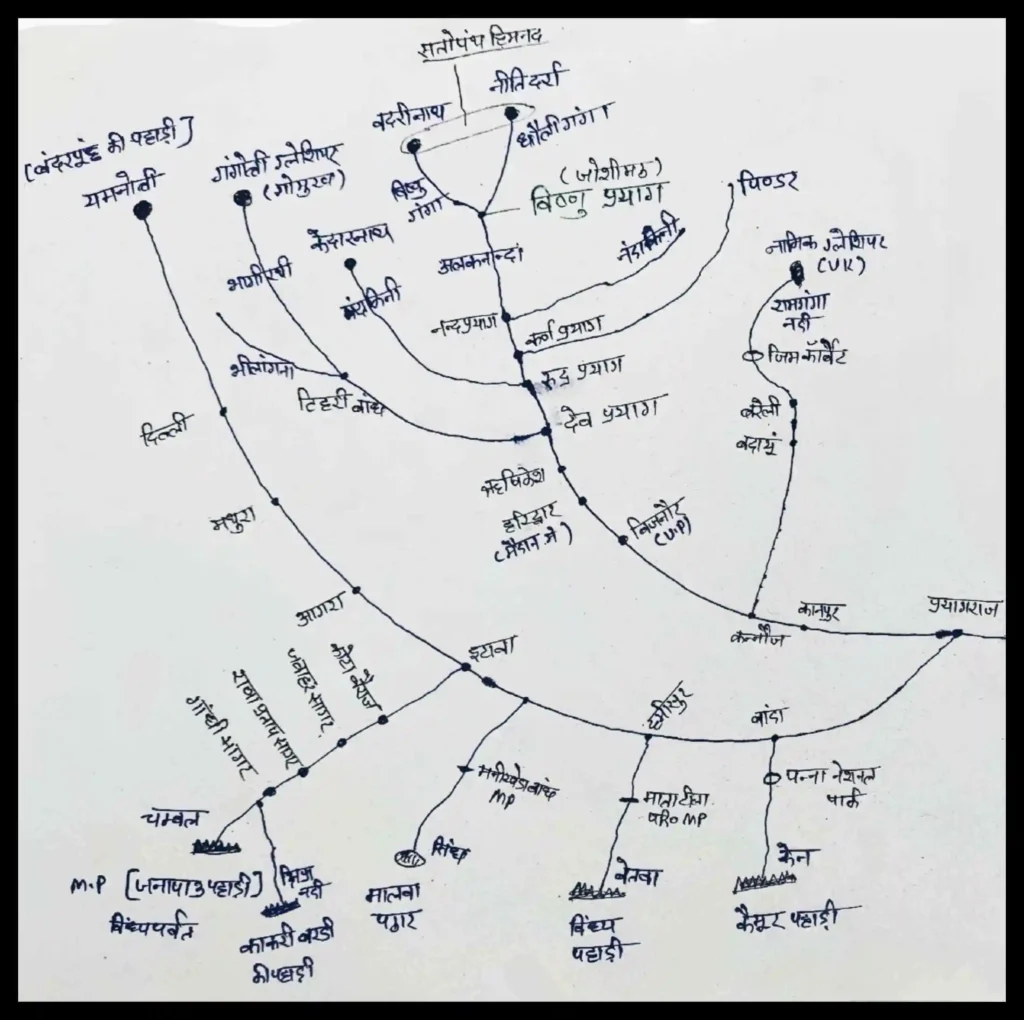 सतोपंथ हिमनद
नीति दर्रा
बदरीनाथ
धौली गंगा
[बंदरपूंछ की पहाड़ी]
यमनोत्री
गंगोत्री ग्लेशियर
(गोमुख)
विष्णु
गंगा
(जोशीमठ)
विष्णु प्रयाग
पिण्डर
केदारनाथ
अलकनन्दा
नंदाकिनी
नामिक ग्लेशियर
(UK)
भागीरथी
मंदाकिनी
रामगंगा
नदी
नन्दप्रयाग
कर्ण प्रयाग
जिम कॉर्बेट
भीलांगना
रुद्र प्रयाग
टिहरी बांध
देव प्रयाग
बरेली
बदायूं
दिल्ली
ऋषिकेश
मथुरा
हरिद्वार
(मैदान में)
बिजनौर
(U.P)
आगरा
कन्नौज
कानपुर
प्रयागराज
इटावा
कोटा बैराज
जवाहर सागर
राणा प्रताप सागर
गांधी सागर
हमीरपुर
बांदा
चम्बल
MP
माताटीला
परि० MP
पन्ना नेशनल
पार्क
सिंध
बेतवा
केन
M.P [जनापाउ पहाड़ी]
विंध्य पर्वत
नदी
काकरी बरडी
की पहाड़ी
मालवा
पठार
विंध्य
पहाड़ी
कैमूर पहाड़ी